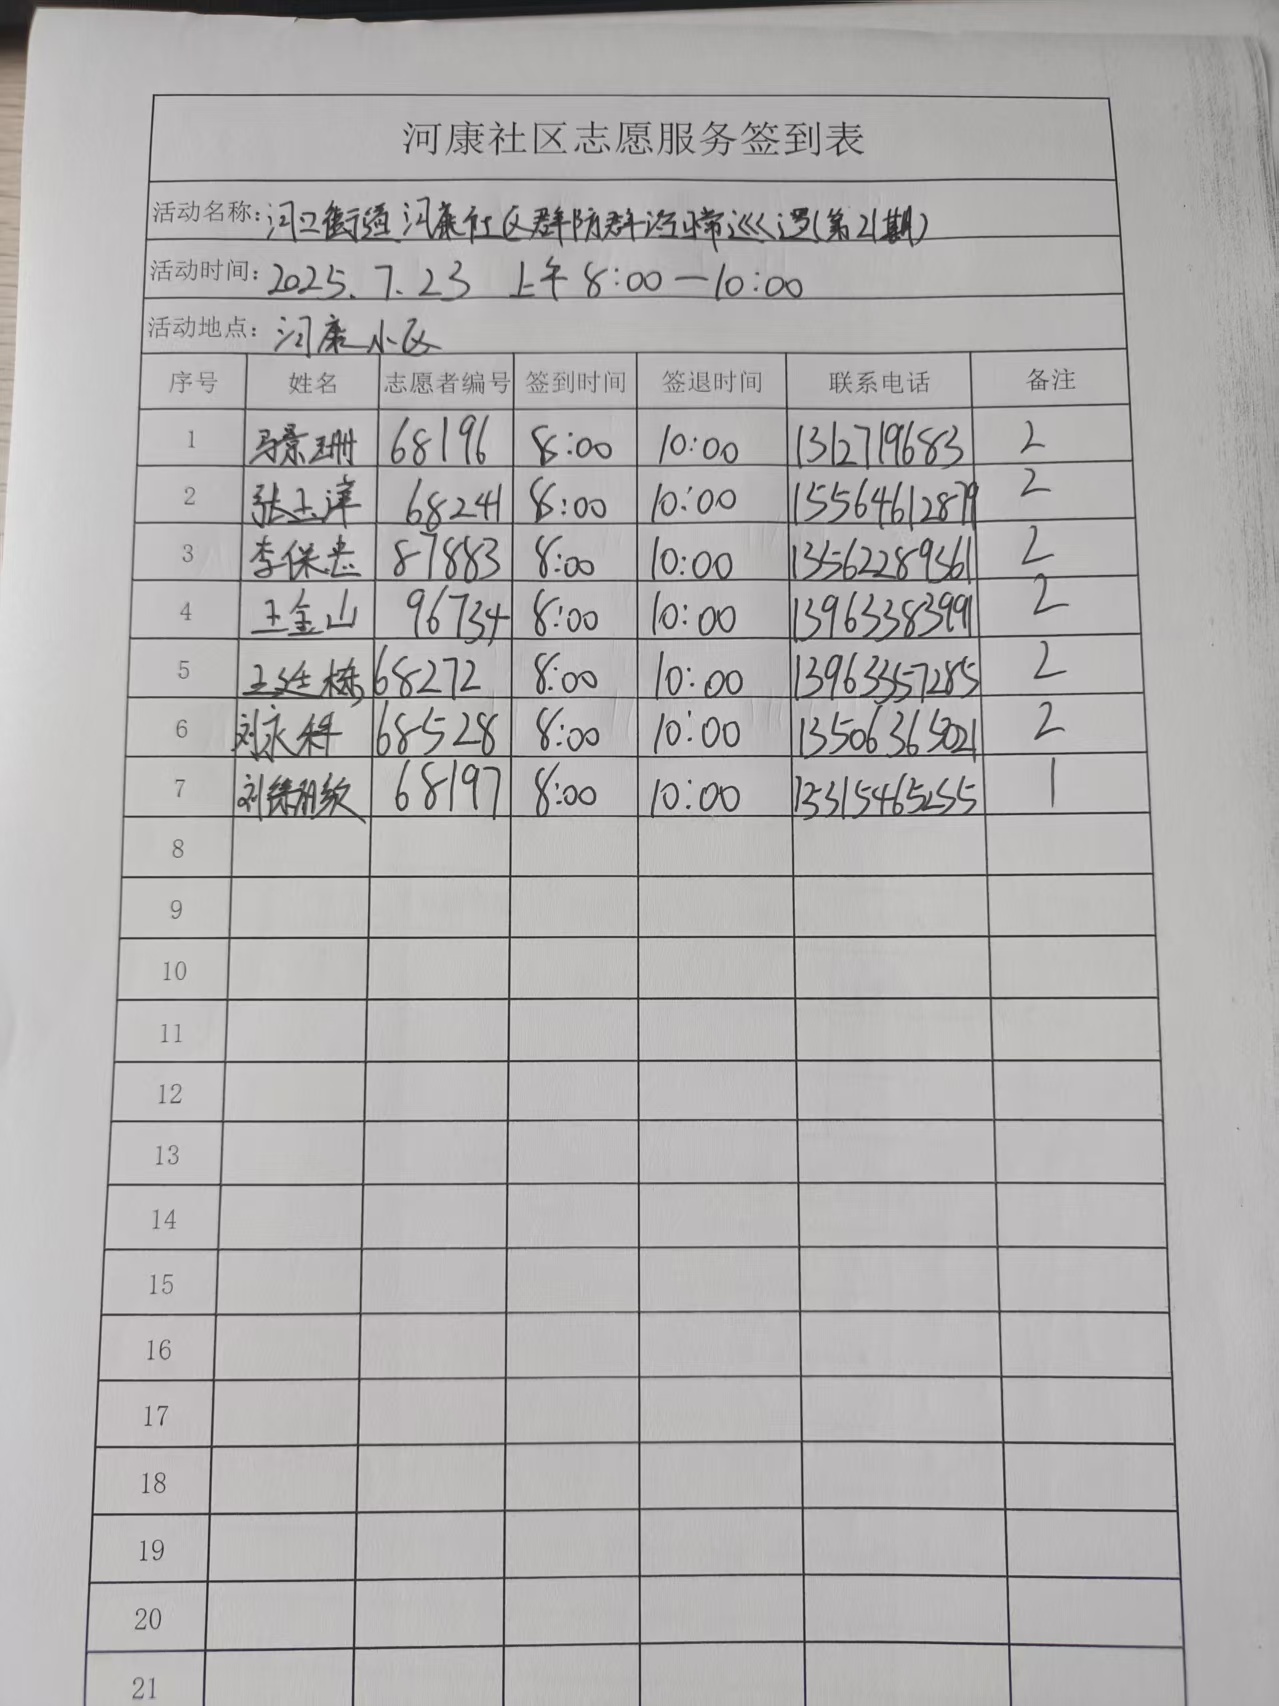 河康社区志愿服务签到表
活动名称：河口街道河康社区群防群治日常巡逻(第21期)
活动时间：2025.7.23 上午8:00—10:00
活动地点：河康小区
序号 姓名 志愿者编号 签到时间 签退时间 联系电话 备注
1 马景珊 68196 8:00 10:00 1312719683 2
2 张玉萍 68241 8:00 10:00 15564612879 2
3 李保忠 87883 8:00 10:00 13562289361 2
4 王金山 96734 8:00 10:00 13963383991 2
5 王廷栋 68272 8:00 10:00 13963357285 2
6 刘永科 68528 8:00 10:00 13506365021 2
7 刘 68197 8:00 10:00 15315465255 1
8
9
10
11
12
13
14
15
16
17
18
19
20
21